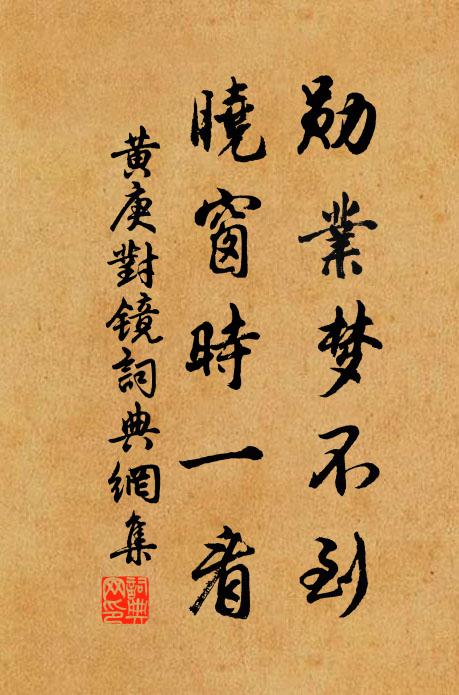 勋業梦不到
曉窗時一看
黃庚對镜詞典網集
詞典网印